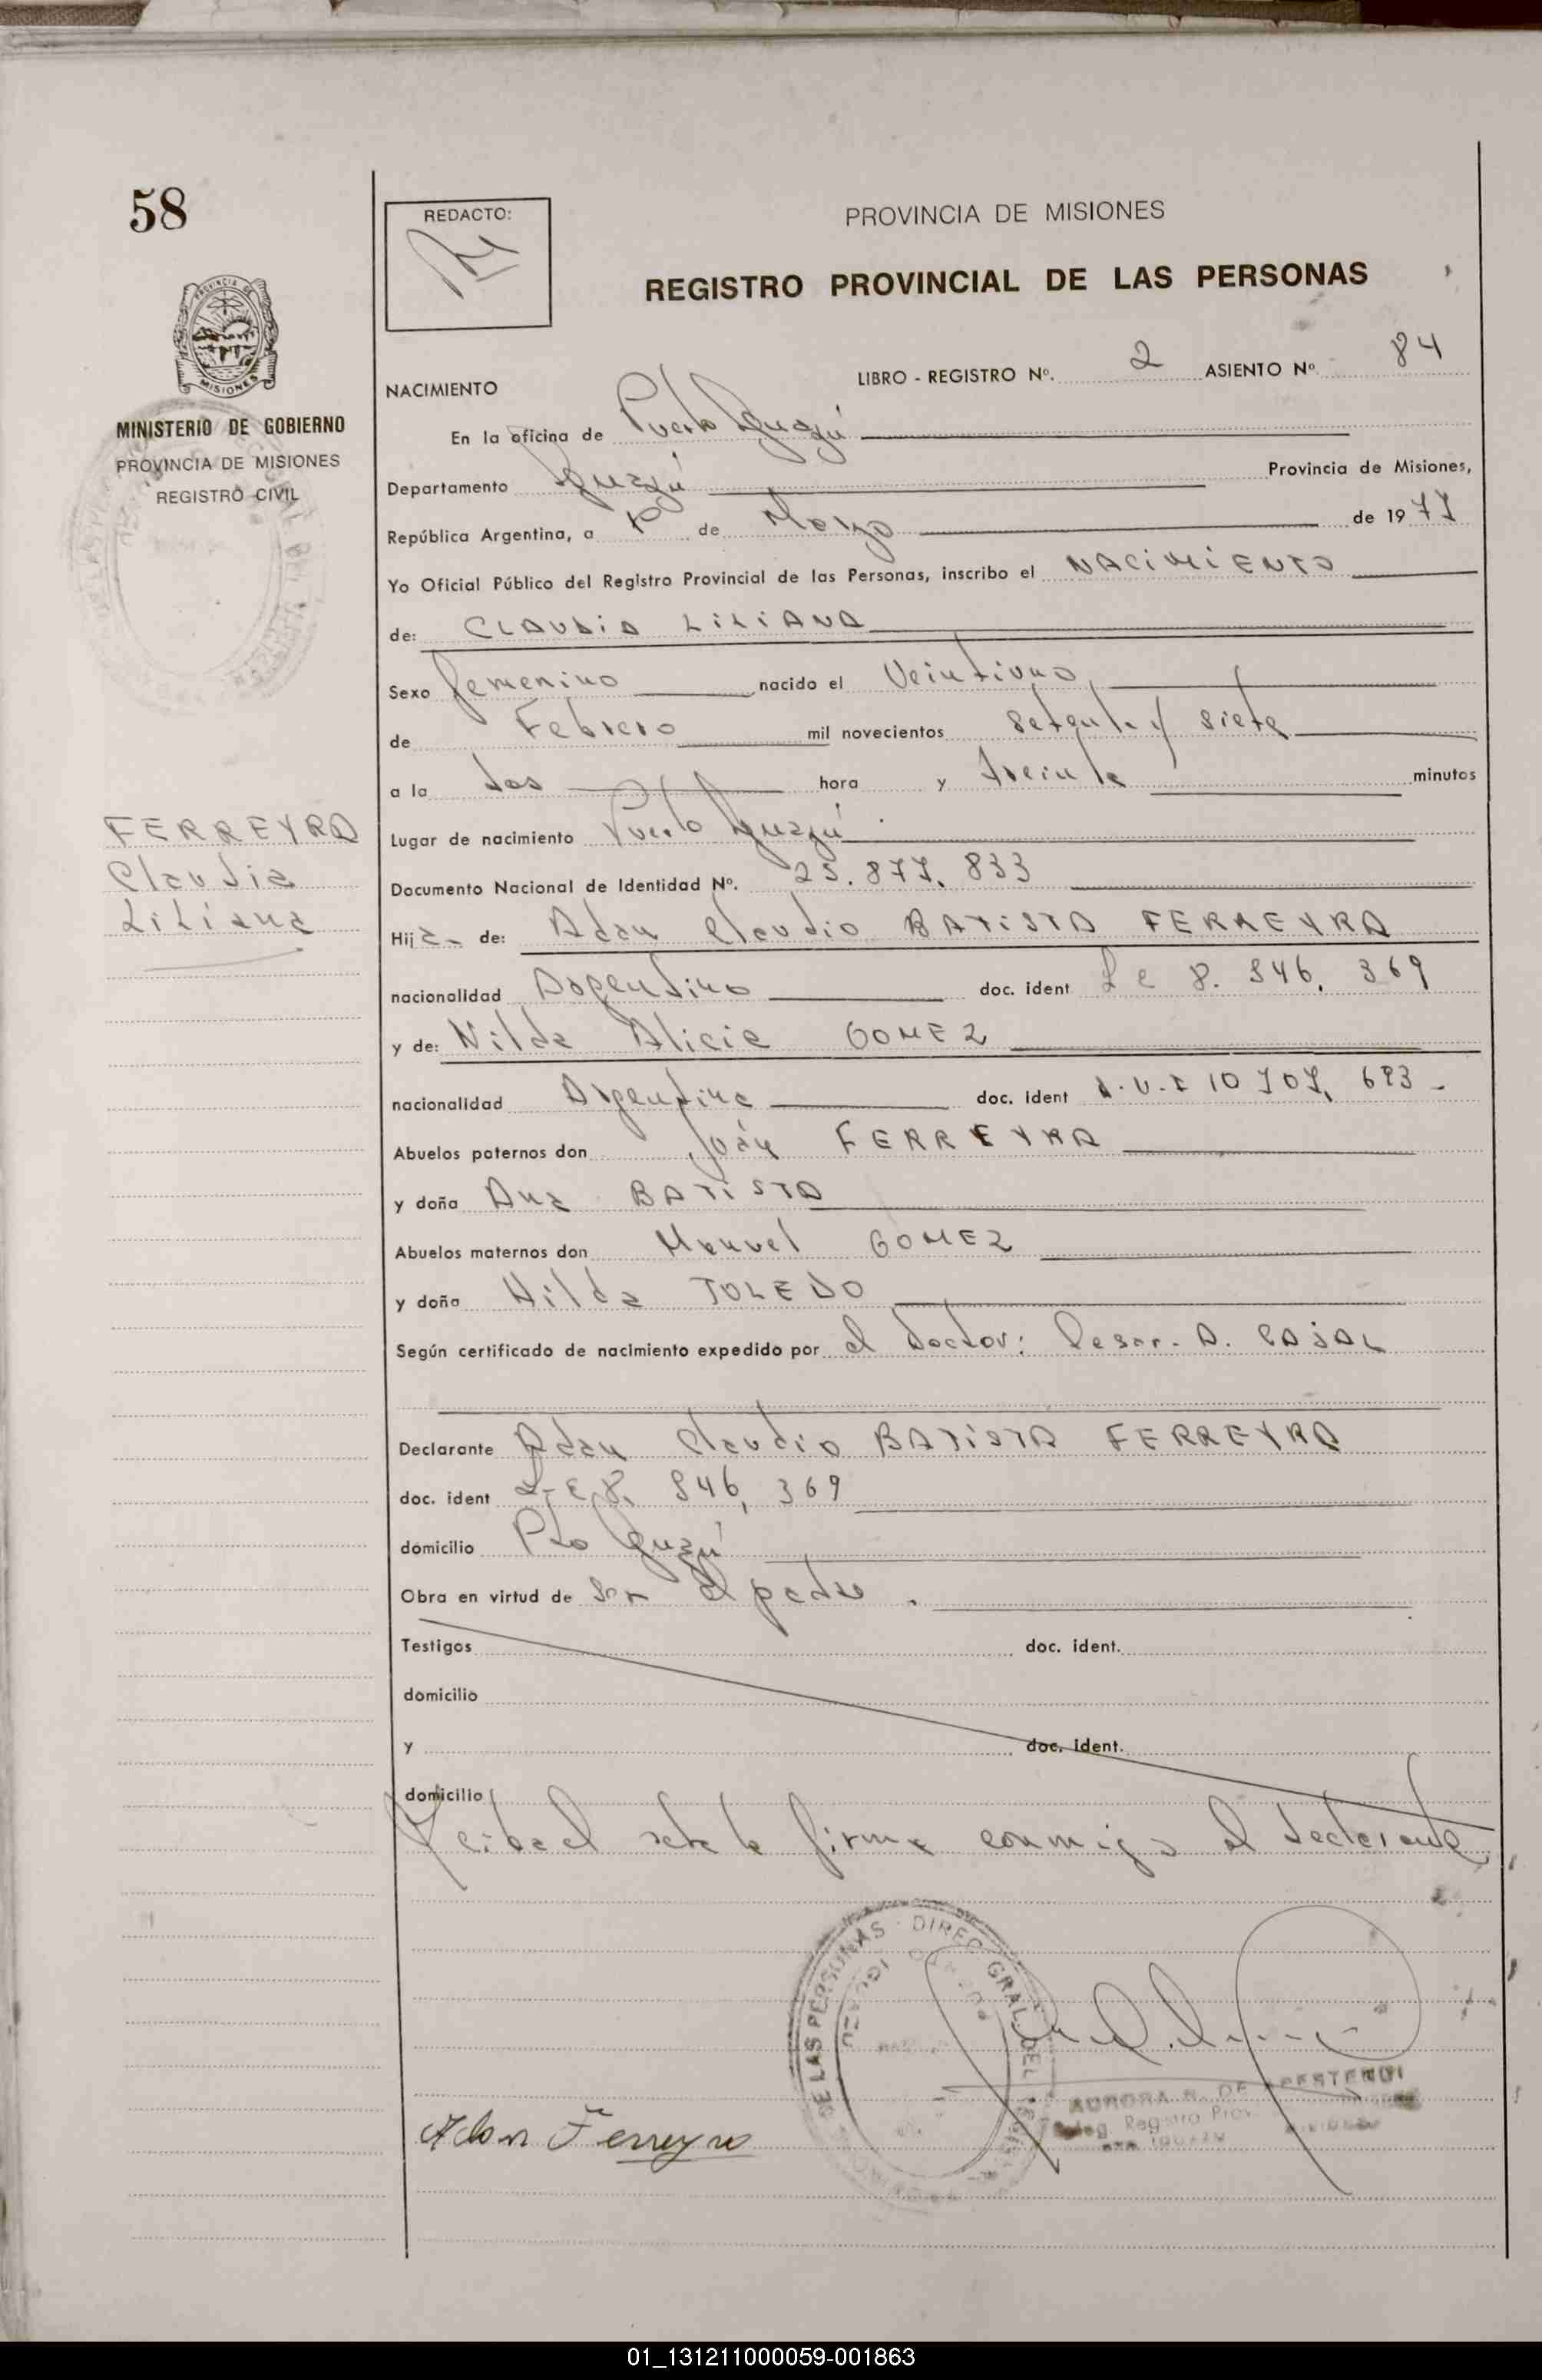 58
REDACTO:
PROVINCIA DE MISIONES
REGISTRO PROVINCIAL DE LAS PERSONAS
LIBRO - REGISTRO Nº. 2 ASIENTO Nº 84
PROVINCIA DE
MISIONES
MINISTERIO DE GOBIERNO
PROVINCIA DE MISIONES
REGISTRO CIVIL
FERREYRA
Claudia
Liliana
NACIMIENTO
En la oficina de Puerto Iguazú
Departamento Iguazú Provincia de Misiones,
República Argentina, a 1º de Marzo de 1977
Yo Oficial Público del Registro Provincial de las Personas, inscribo el NACIMIENTO
de: CLAUDIA LILIANA
Sexo femenino nacido el Veintiuno
de Febrero mil novecientos setenta y siete
a la dos hora y treinta minutos
Lugar de nacimiento Puerto Iguazú
Documento Nacional de Identidad Nº. 25.877.833
Hija de: Adan Claudio BATISTA FERREYRA
nacionalidad Argentino doc. ident L e 8. 846. 369
y de: Nilda Alicia GOMEZ
nacionalidad Argentina doc. ident 10 707. 693 -
Abuelos paternos don Juan FERREYRA
y doña Ana BATISTA
Abuelos maternos don Manuel GOMEZ
y doña Hilda TOLEDO
Según certificado de nacimiento expedido por el Doctor: Cesar. A. CAJAL
Declarante Adan Claudio BATISTA FERREYRA
doc. ident L- e 8. 846, 369
domicilio Pto Iguazú
Obra en virtud de ser el padre.
Testigos doc. ident.
domicilio
y doc. ident.
domicilio
Leida el acta la firma conmigo el declarante
DE LAS PERSONAS - DIREC. GRAL. DEL
IGUAZU
AURORA R. DE
Deleg. Registro Prov.
PTO. IGUAZU
Adan Ferreyra
01_131211000059-001863